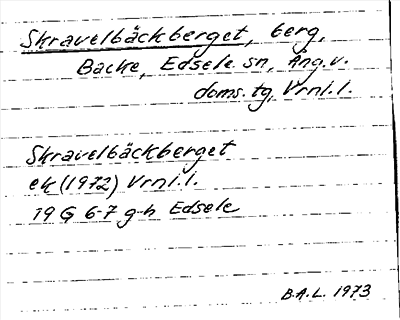 Skravelbäckberget, berg,
Backe, Edsele sn, Ång.v.
doms. tg, Vrnl.l.
Skravelbäckberget
ek (1972) Vrnl.l.
19 G 6-7 g-h Edsele
B.A.L. 1973